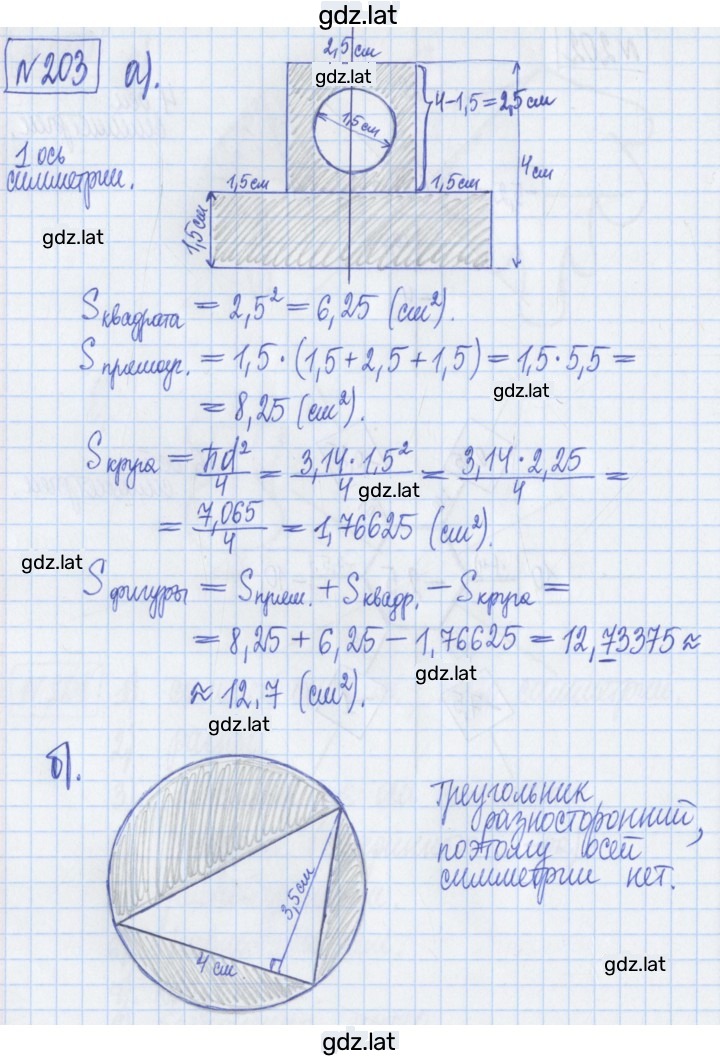 gdz.lat
№203 а).
2,5 см
gdz.lat
1,5 см
4-1,5=2,5 см
4 см
1 ось
симметрии.
1,5 см
1,5 см
1,5 см
gdz.lat
Sквадрата = 2,5² = 6,25 (см²).
Sпрямоуг. = 1,5 · (1,5 + 2,5 + 1,5) = 1,5 · 5,5 =
gdz.lat
= 8,25 (см²).
Sкруга = πd²/4 = 3,14 · 1,5²/4 = 3,14 · 2,25/4 =
gdz.lat
= 7,065/4 = 1,76625 (см²).
gdz.lat
Sфигуры = Sпрям. + Sквадр. − Sкруга =
= 8,25 + 6,25 − 1,76625 = 12,73375 ≈
gdz.lat
≈ 12,7 (см²).
gdz.lat
б).
Треугольник
разносторонний,
поэтому осей
симметрии нет.
3,5 см
4 см
gdz.lat
gdz.lat